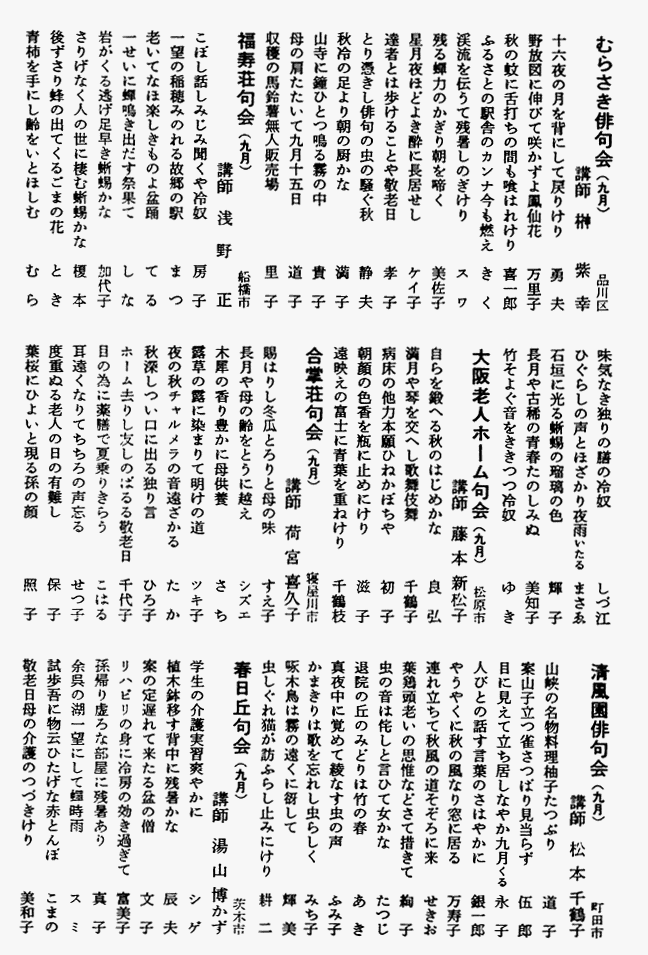 むらさき俳句会（九月） 品川区
講師 榊 紫幸
十六夜の月を背にして戻りけり 勇夫
野放図に伸びて咲かずよ鳳仙花 万里子
秋の蚊に舌打ちの間も喰はれけり 喜一郎
ふるさとの駅舎のカンナ今も燃え きく
渓流を伝うて残暑しのぎけり スワ
残る蟬力のかぎり朝を啼く 美佐子
星月夜ほどよき酔に長居せし ケイ子
達者とは歩けることや敬老日 孝子
とり憑きし俳句の虫の騒ぐ秋 静夫
秋冷の足より朝の厨かな 満子
山寺に鐘ひとつ鳴る霧の中 貴子
母の肩たたいて九月十五日 道子
収穫の馬鈴薯無人販売場 里子
福寿荘句会（九月） 船橋市
講師 浅野 正
こぼし話しみじみ聞くや冷奴 房子
一望の稲穂みのれる故郷の駅 まつ
老いてなほ楽しきものよ盆踊 てる
一せいに蟬鳴き出だす祭果て しな
岩がくる逃げ足早き蜥蜴かな 加代子
さりげなく人の世に棲む蜥蜴かな 榎本
後ずさり蜂の出てくるごまの花 とき
青柿を手にし齢をいとほしむ むら
味気なき独りの膳の冷奴 しづ江
ひぐらしの声とほざかり夜雨いたる まさゑ
石垣に光る蜥蜴の瑠璃の色 輝子
長月や古稀の青春たのしみぬ 美知子
竹そよぐ音をききつつ冷奴 ゆき
大阪老人ホーム句会（九月） 松原市
講師 藤本 新松子
自らを鍛へる秋のはじめかな 良弘
満月や琴を交へし歌舞伎舞 千鶴子
病床の他力本願ひねかぼちや 初子
朝顔の色香を瓶に止めにけり 滋子
遠映えの富士に青葉を重ねけり 千鶴枝
合掌荘句会（九月） 寝屋川市
講師 荷宮 喜久子
賜はりし冬瓜とろりと母の味 すえ子
長月や母の齢をとうに越え シズエ
木犀の香り豊かに母供養 さち
露草の露に染まりて明けの道 ツキ子
夜の秋チャルメラの音遠ざかる たか
秋深しつい口に出る独り言 ひろ子
ホーム去りし友しのばるる敬老日 千代子
日の為に薬膳で夏乗りきらう こはる
耳遠くなりてちちろの声忘る せつ子
度重ぬる老人の日の有難し 保子
葉桜にひよいと現る孫の顔 照子
清風園俳句会（九月） 町田市
講師 松本 千鶴子
山峡の名物料理柚子たつぷり 道子
案山子立つ雀さつぱり見当らず 伍郎
目に見えて立ち居しなやか九月くる 永子
人びとの話す言葉のさはやかに 銀一郎
やうやくに秋の風なり窓に居る 万寿子
連れ立ちて秋風の道そぞろに来 せきお
葉鶏頭老いの思惟などさて措きて 絢子
虫の音は侘しと言ひて女かな たつじ
退院の丘のみどりは竹の春 あき
真夜中に覚めて綾なす虫の声 ふみ子
かまきりは歌を忘れし虫らしく みち子
啄木鳥は霧の遠くに谺して 輝美
虫しぐれ猫が訪ふらし止みにけり 耕二
春日丘句会（九月） 茨木市
講師 湯山 博かず
学生の介護実習爽やかに シゲ
植木鉢移す背中に残暑かな 辰夫
案の定遅れて来たる盆の僧 文子
リハビリの身に冷房の効き過ぎて 富美子
孫帰り虚ろな部屋に残暑あり 真子
余呉の湖一望にして蟬時雨 スミ
試歩吾に物云ひたげな赤とんぼ こまの
敬老日母の介護のつづきけり 美和子